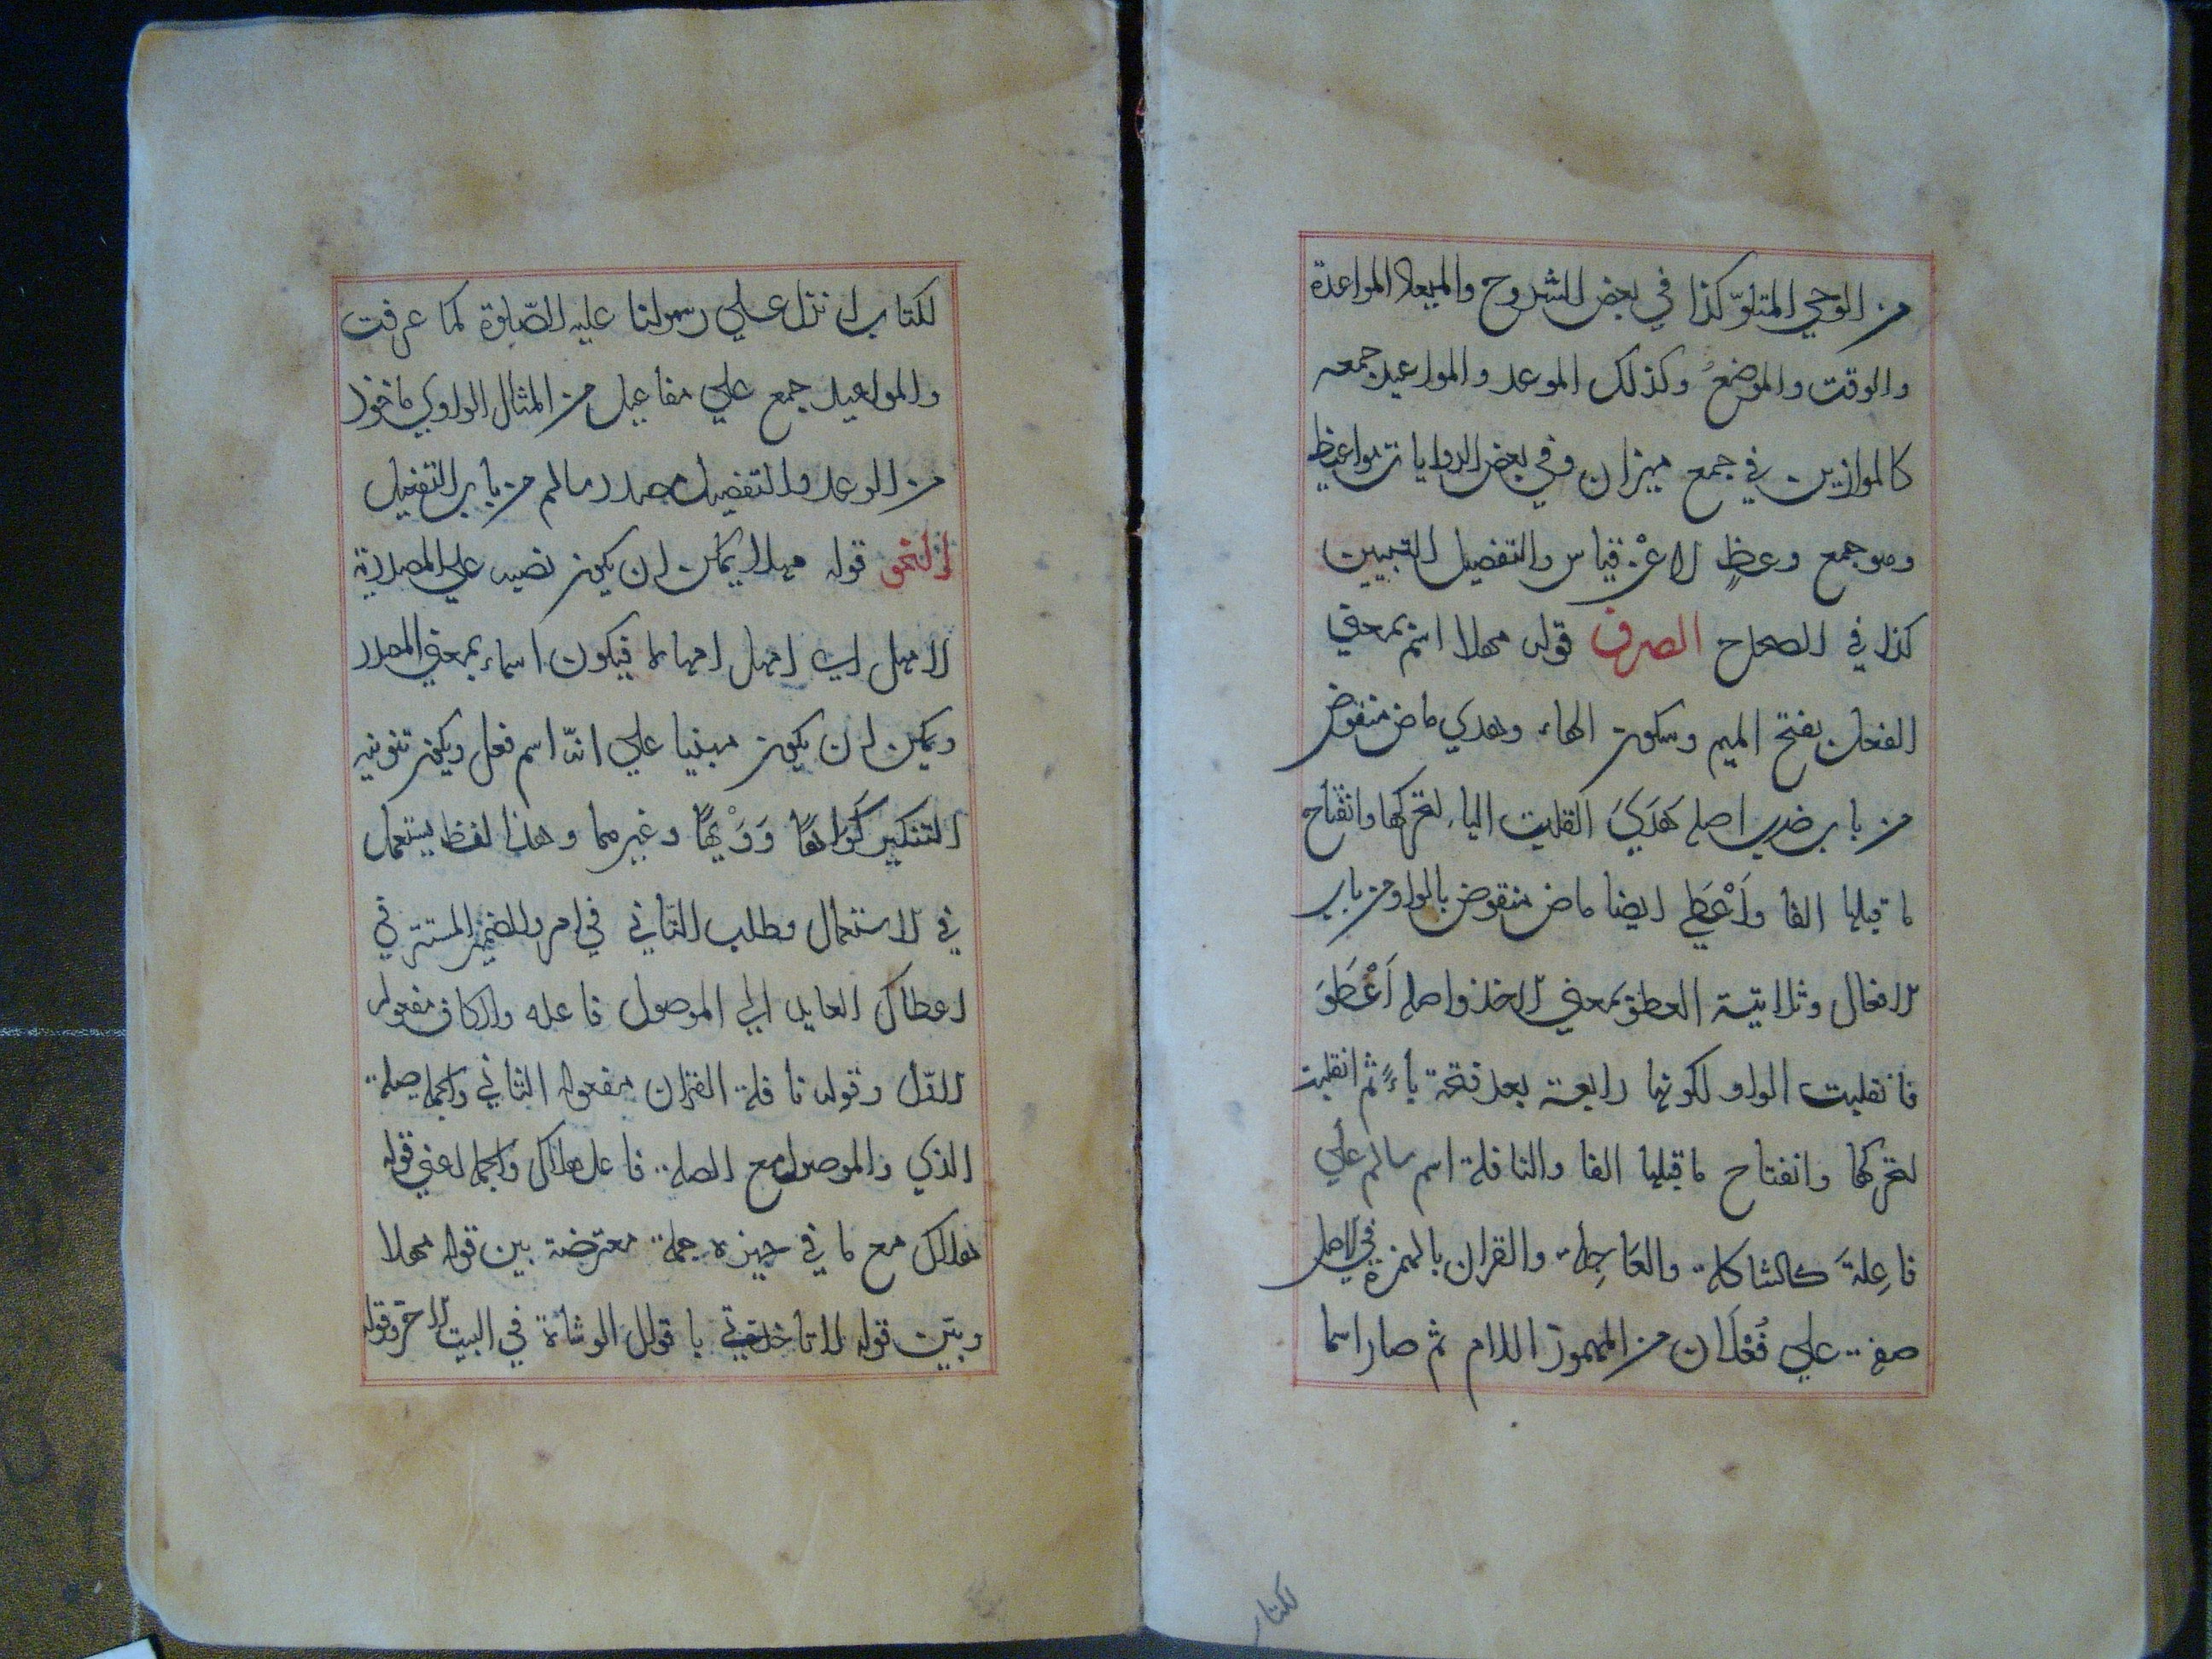 من الوحي المتلوّ كذا في بعض الشروح والميعاد المواعدة
والوقت والموضعُ وكذلك الموعد والمواعيد جمعه
كالموازين في جمع ميزان وفي بعض الروايات مواعيظ
وهو جمع وعظٍ لا عنْ قياس والتفصيل التبيين
كذا في الصحاح الصرف قوله مهلا اسم بمعني
الفعل بفتح الميم وسكون الهاء وهدي ماض منقوض
من باب ضرب اصله هَدَيَ انقلبت الياء لتحركها وانفتاح
ما قبلها الفا واَعْطَي ايضا ماض منقوض بالواو من باب
الافعال وثلاثيّة العطو بمعني الاخذ واصله اَعْطَوَ
فانقلبت الواو لكونها رابعة بعد فتحة ياءً ثم انقلبت
لتحركها وانفتاح ما قبلها الفا والنافلة اسم سالم علي
فاعِلةَ كالشاكلة والعَاجِلة والقران بالهمزة في الاصل
صفة علي فُعْلَان من المهموز اللام ثم صار اسما
لكتاب
لكتاب انزل علي رسولنا عليه الصّلوة كما عرفت
والمواعيد جمع علي مفاعيل من المثال الواوي ماخوذ
من الوعد والتفصيل مصدر سالم من باب التفعيل
النحو قوله مهلا يمكن ان يكون نصبه علي المصدرية
لامهل اي امهل امهالا فيكون اسماء بمعني المصدر
ويمكن ان يكون مبنيا علي انّه اسم فعل ويكون تنوينه
التنكير كَوَاهًا وَوَيْهًا وغيرهما وهذا لفظ يستعمل
في الاستعمال وطلب التاني في امر والضمير المستتر في
اعطاك العايد الي الموصول فاعله والكاف مفعوله
الاوّل وقوله نافلة القران مفعوله الثاني والجملة صلة
الذي والموصول مع الصلة فاعل هداك والجملة اعني قوله
هداك مع ما في حيزه جملة معترضة بين قوله مهلا
وبين قوله لا تاخذني باقوال الوشاة في البيت الاخر وقوله